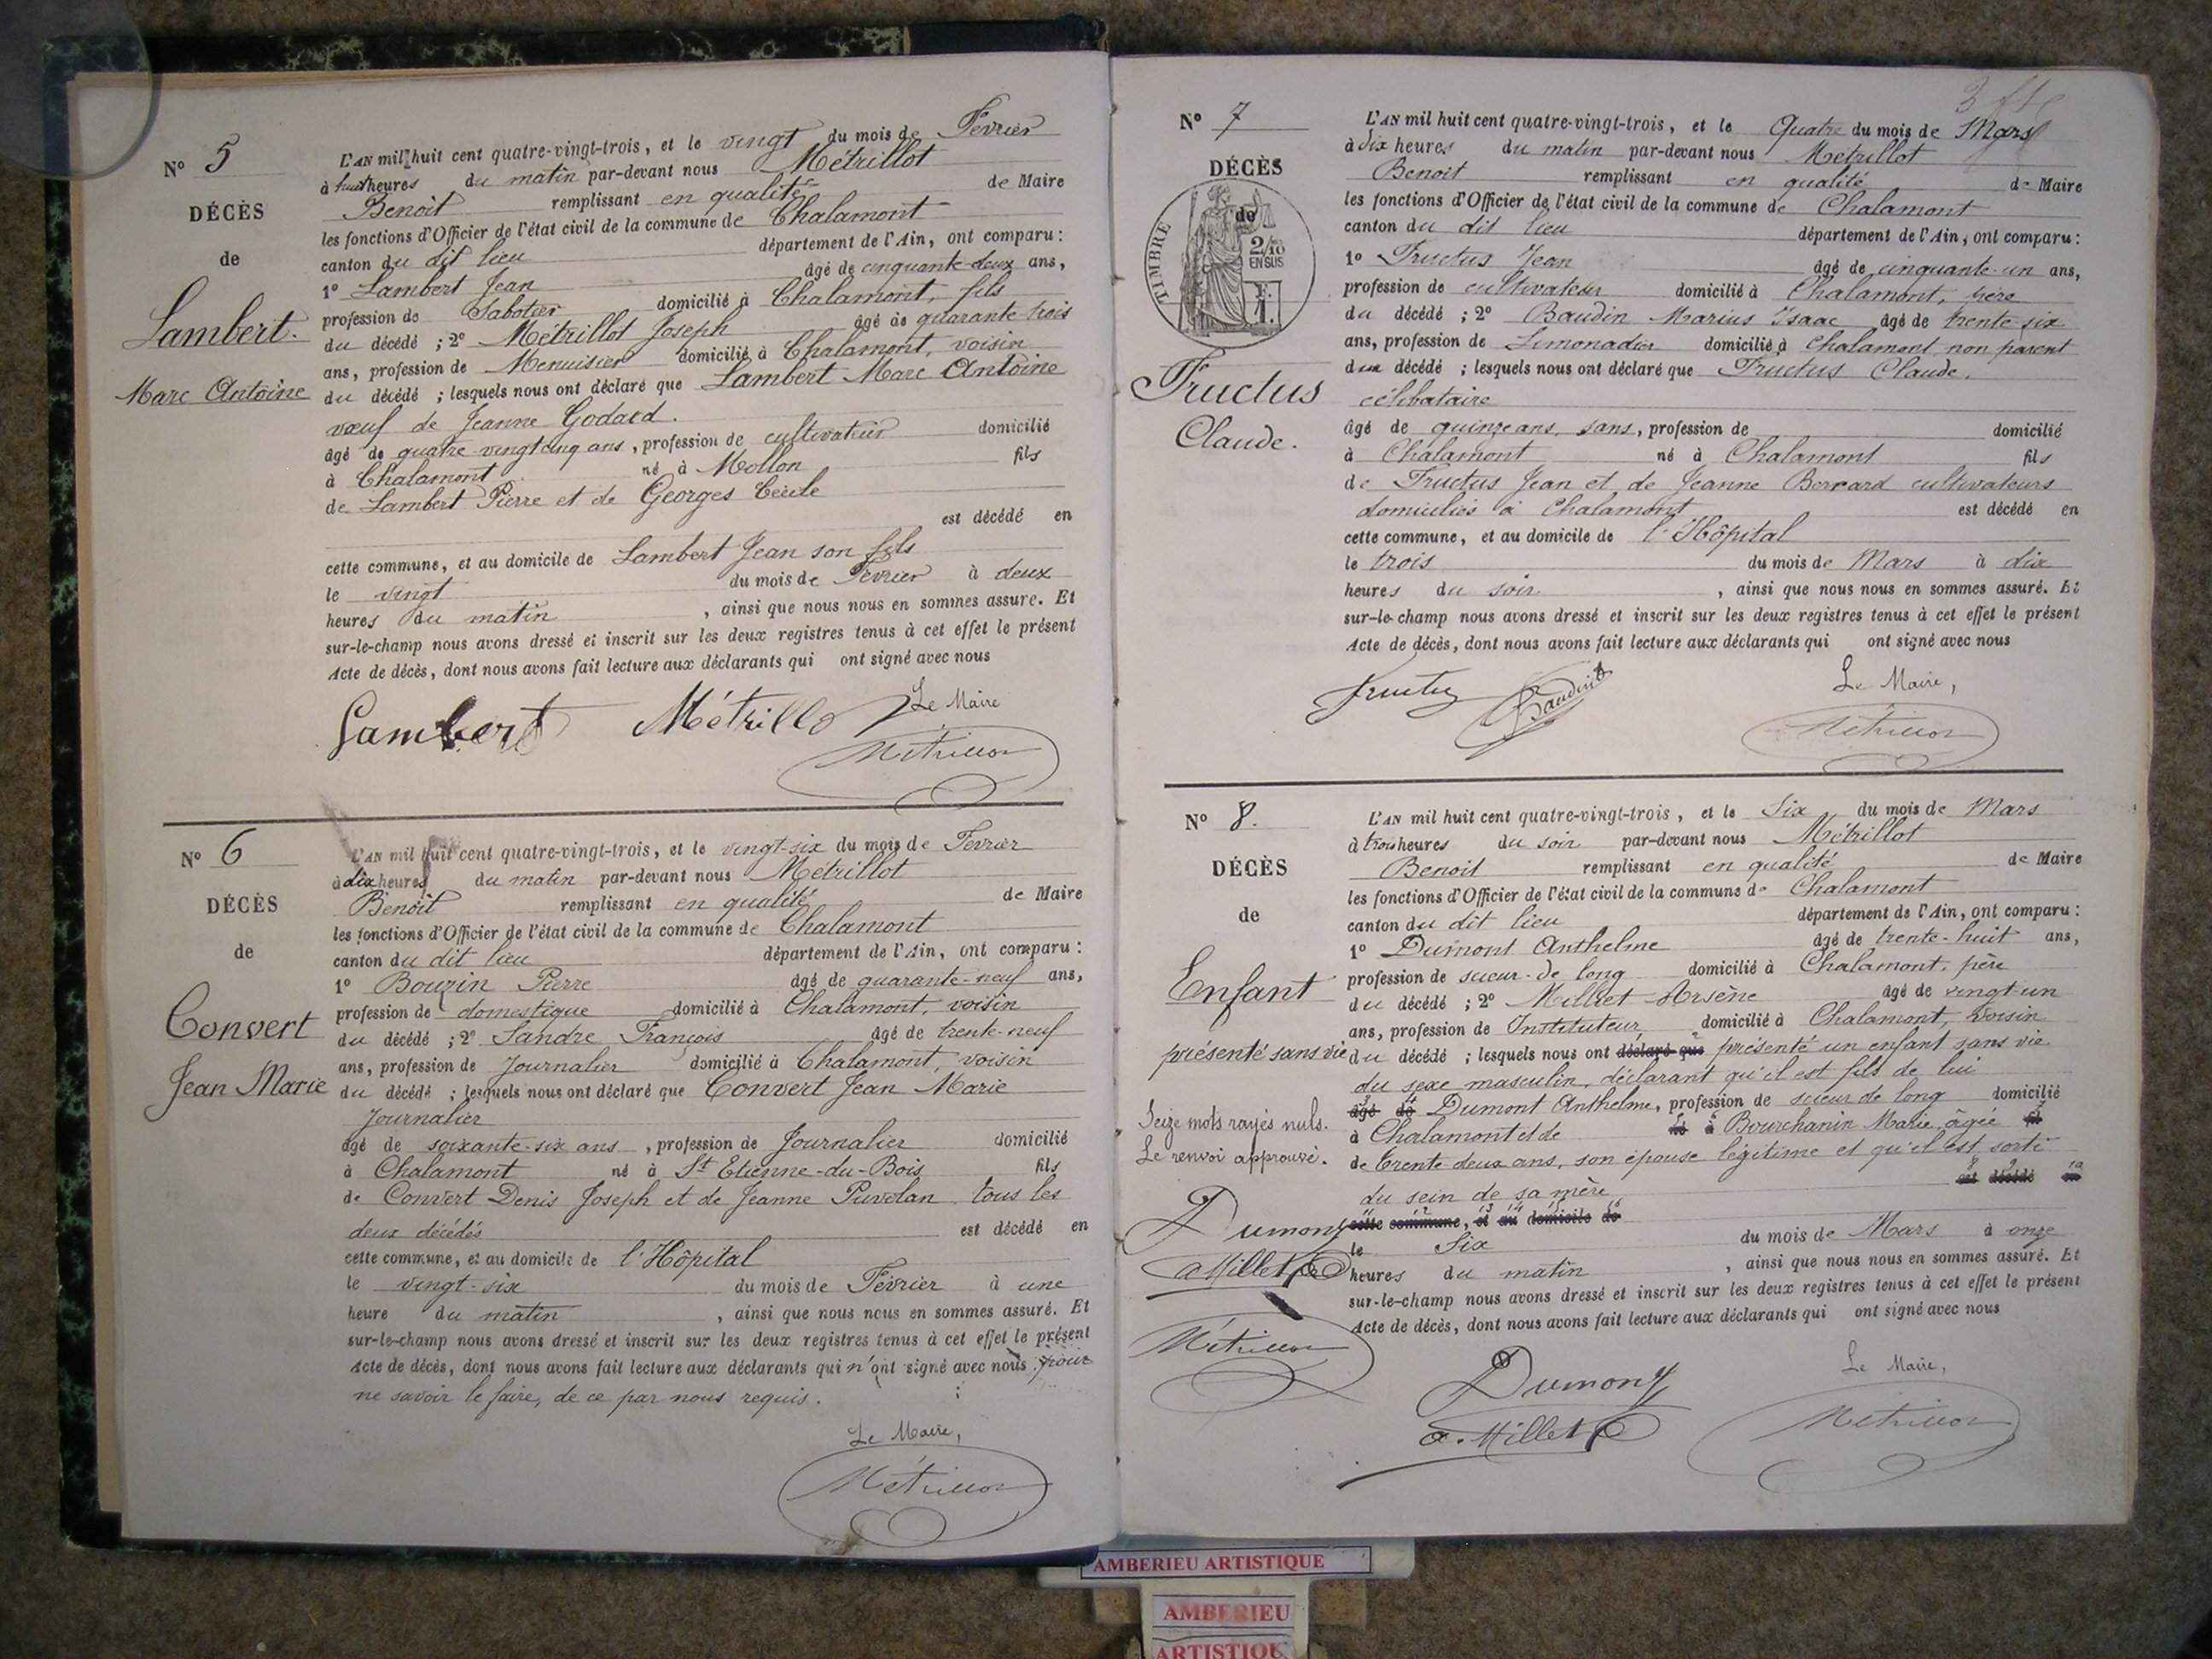 N° 5
DÉCÈS
de
Lambert.
Marc Antoine
L'AN mil huit cent quatre-vingt-trois, et le vingt du mois de Février
à huit heures du matin par-devant nous Métrillot
Benoit remplissant en qualité de Maire
les fonctions d'Officier de l'état civil de la commune de Chalamont
canton du dit lieu département de l'Ain, ont comparu :
1° Lambert Jean âgé de cinquante-deux ans,
profession de Sabotier domicilié à Chalamont, fils
du décédé ; 2° Métrillot Joseph âgé de quarante-trois
ans, profession de Menuisier domicilié à Chalamont, voisin
du décédé ; lesquels nous ont déclaré que Lambert Marc Antoine
vœuf de Jeanne Godard.
âgé de quatre-vingt cinq ans, profession de cultivateur domicilié
à Chalamont né à Mollon fils
de Lambert Pierre et de Georges Cécile
est décédé en
cette commune, et au domicile de Lambert Jean son fils
le vingt du mois de Février à deux
heures du matin, ainsi que nous nous en sommes assuré. Et
sur-le-champ nous avons dressé et inscrit sur les deux registres tenus à cet effet le présent
Acte de décès, dont nous avons fait lecture aux déclarants qui ont signé avec nous
Lambert Métrillot Le Maire
Métrillot
N° 6
DÉCÈS
de
Convert
Jean Marie
L'AN mil huit cent quatre-vingt-trois, et le vingt-six du mois de Février
à dix heures du matin par-devant nous Métrillot
Benoit remplissant en qualité de Maire
les fonctions d'Officier de l'état civil de la commune de Chalamont
canton du dit lieu département de l'Ain, ont comparu :
1° Bouzin Pierre âgé de quarante-neuf ans,
profession de domestique domicilié à Chalamont, voisin
du décédé ; 2° Sandre François âgé de trente-neuf
ans, profession de Journalier domicilié à Chalamont, voisin
du décédé ; lesquels nous ont déclaré que Convert Jean Marie
Journalier
âgé de soixante-six ans, profession de Journalier domicilié
à Chalamont né à St Etienne-du-Bois fils
de Convert Denis Joseph et de Jeanne Puvelan tous les
deux décédés est décédé en
cette commune, et au domicile de l'Hôpital
le vingt-six du mois de Février à une
heure du matin, ainsi que nous nous en sommes assuré. Et
sur-le-champ nous avons dressé et inscrit sur les deux registres tenus à cet effet le présent
Acte de décès, dont nous avons fait lecture aux déclarants qui n'ont signé avec nous pour
ne savoir le faire, de ce par nous requis.
Le Maire,
Métrillot
N° 7
DÉCÈS
de
TIMBRE
2/10
EN SUS
F.
1.
Fructus
Claude.
L'AN mil huit cent quatre-vingt-trois, et le Quatre du mois de Mars
à dix heures du matin par-devant nous Métrillot
Benoit remplissant en qualité de Maire
les fonctions d'Officier de l'état civil de la commune de Chalamont
canton du dit lieu département de l'Ain, ont comparu :
1° Fructus Jean âgé de cinquante-un ans,
profession de cultivateur domicilié à Chalamont, père
du décédé ; 2° Baudin Marius Isaac âgé de trente-six
ans, profession de Limonadier domicilié à Chalamont non parent
du décédé ; lesquels nous ont déclaré que Fructus Claude.
célibataire
âgé de quinze ans, sans, profession de domicilié
à Chalamont né à Chalamont fils
de Fructus Jean et de Jeanne Berrard cultivateurs
domiciliés à Chalamont est décédé en
cette commune, et au domicile de l'Hôpital
le trois du mois de Mars à dix
heures du soir, ainsi que nous nous en sommes assuré. Et
sur-le-champ nous avons dressé et inscrit sur les deux registres tenus à cet effet le présent
Acte de décès, dont nous avons fait lecture aux déclarants qui ont signé avec nous
Fructus Baudin Le Maire,
Métrillot
N° 8.
DÉCÈS
de
Enfant
présenté sans vie
Seize mots rayés nuls.
Le renvoi approuvé.
Dumont
A Millet
Métrillot
L'AN mil huit cent quatre-vingt-trois, et le Six du mois de Mars
à trois heures du soir par-devant nous Métrillot
Benoit remplissant en qualité de Maire
les fonctions d'Officier de l'état civil de la commune de Chalamont
canton du dit lieu département de l'Ain, ont comparu :
1° Dumont Anthelme âgé de trente-huit ans,
profession de scieur-de long domicilié à Chalamont, père
du décédé ; 2° Milliet Arsène âgé de vingt-un
ans, profession de Instituteur domicilié à Chalamont, voisin
du décédé ; lesquels nous ont déclaré que présenté un enfant sans vie
du sexe masculin, déclarant qu'il est fils de lui
âgé de Dumont Anthelme, profession de scieur de long domicilié
à Chalamont et de né à Bourchanin Marie âgée fils
de trente-deux ans, son épouse légitime et qu'il est sorti
du sein de sa mère est décédé en
cette commune, et au domicile de
le Six du mois de Mars à onze
heures du matin, ainsi que nous nous en sommes assuré. Et
sur-le-champ nous avons dressé et inscrit sur les deux registres tenus à cet effet le présent
Acte de décès, dont nous avons fait lecture aux déclarants qui ont signé avec nous
Dumont Le Maire,
a. Millet Métrillot
AMBERIEU ARTISTIQUE
AMBERIEU
ARTISTIQUE